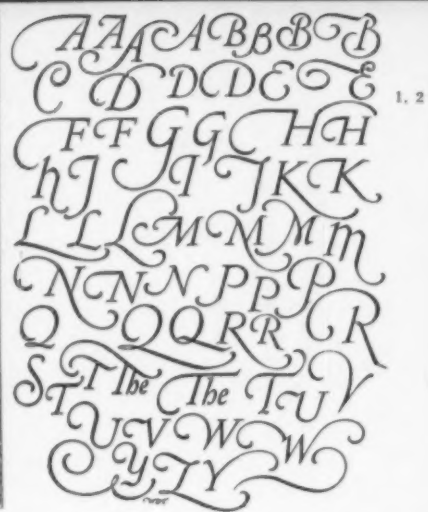 A A A A B B B B
C D D D E E
1, 2
F F G G H H
h J I J K K
L L L M M M m
N N N P P P
Q Q Q R R R
S T T The The T U V
U V W W
y Z Y